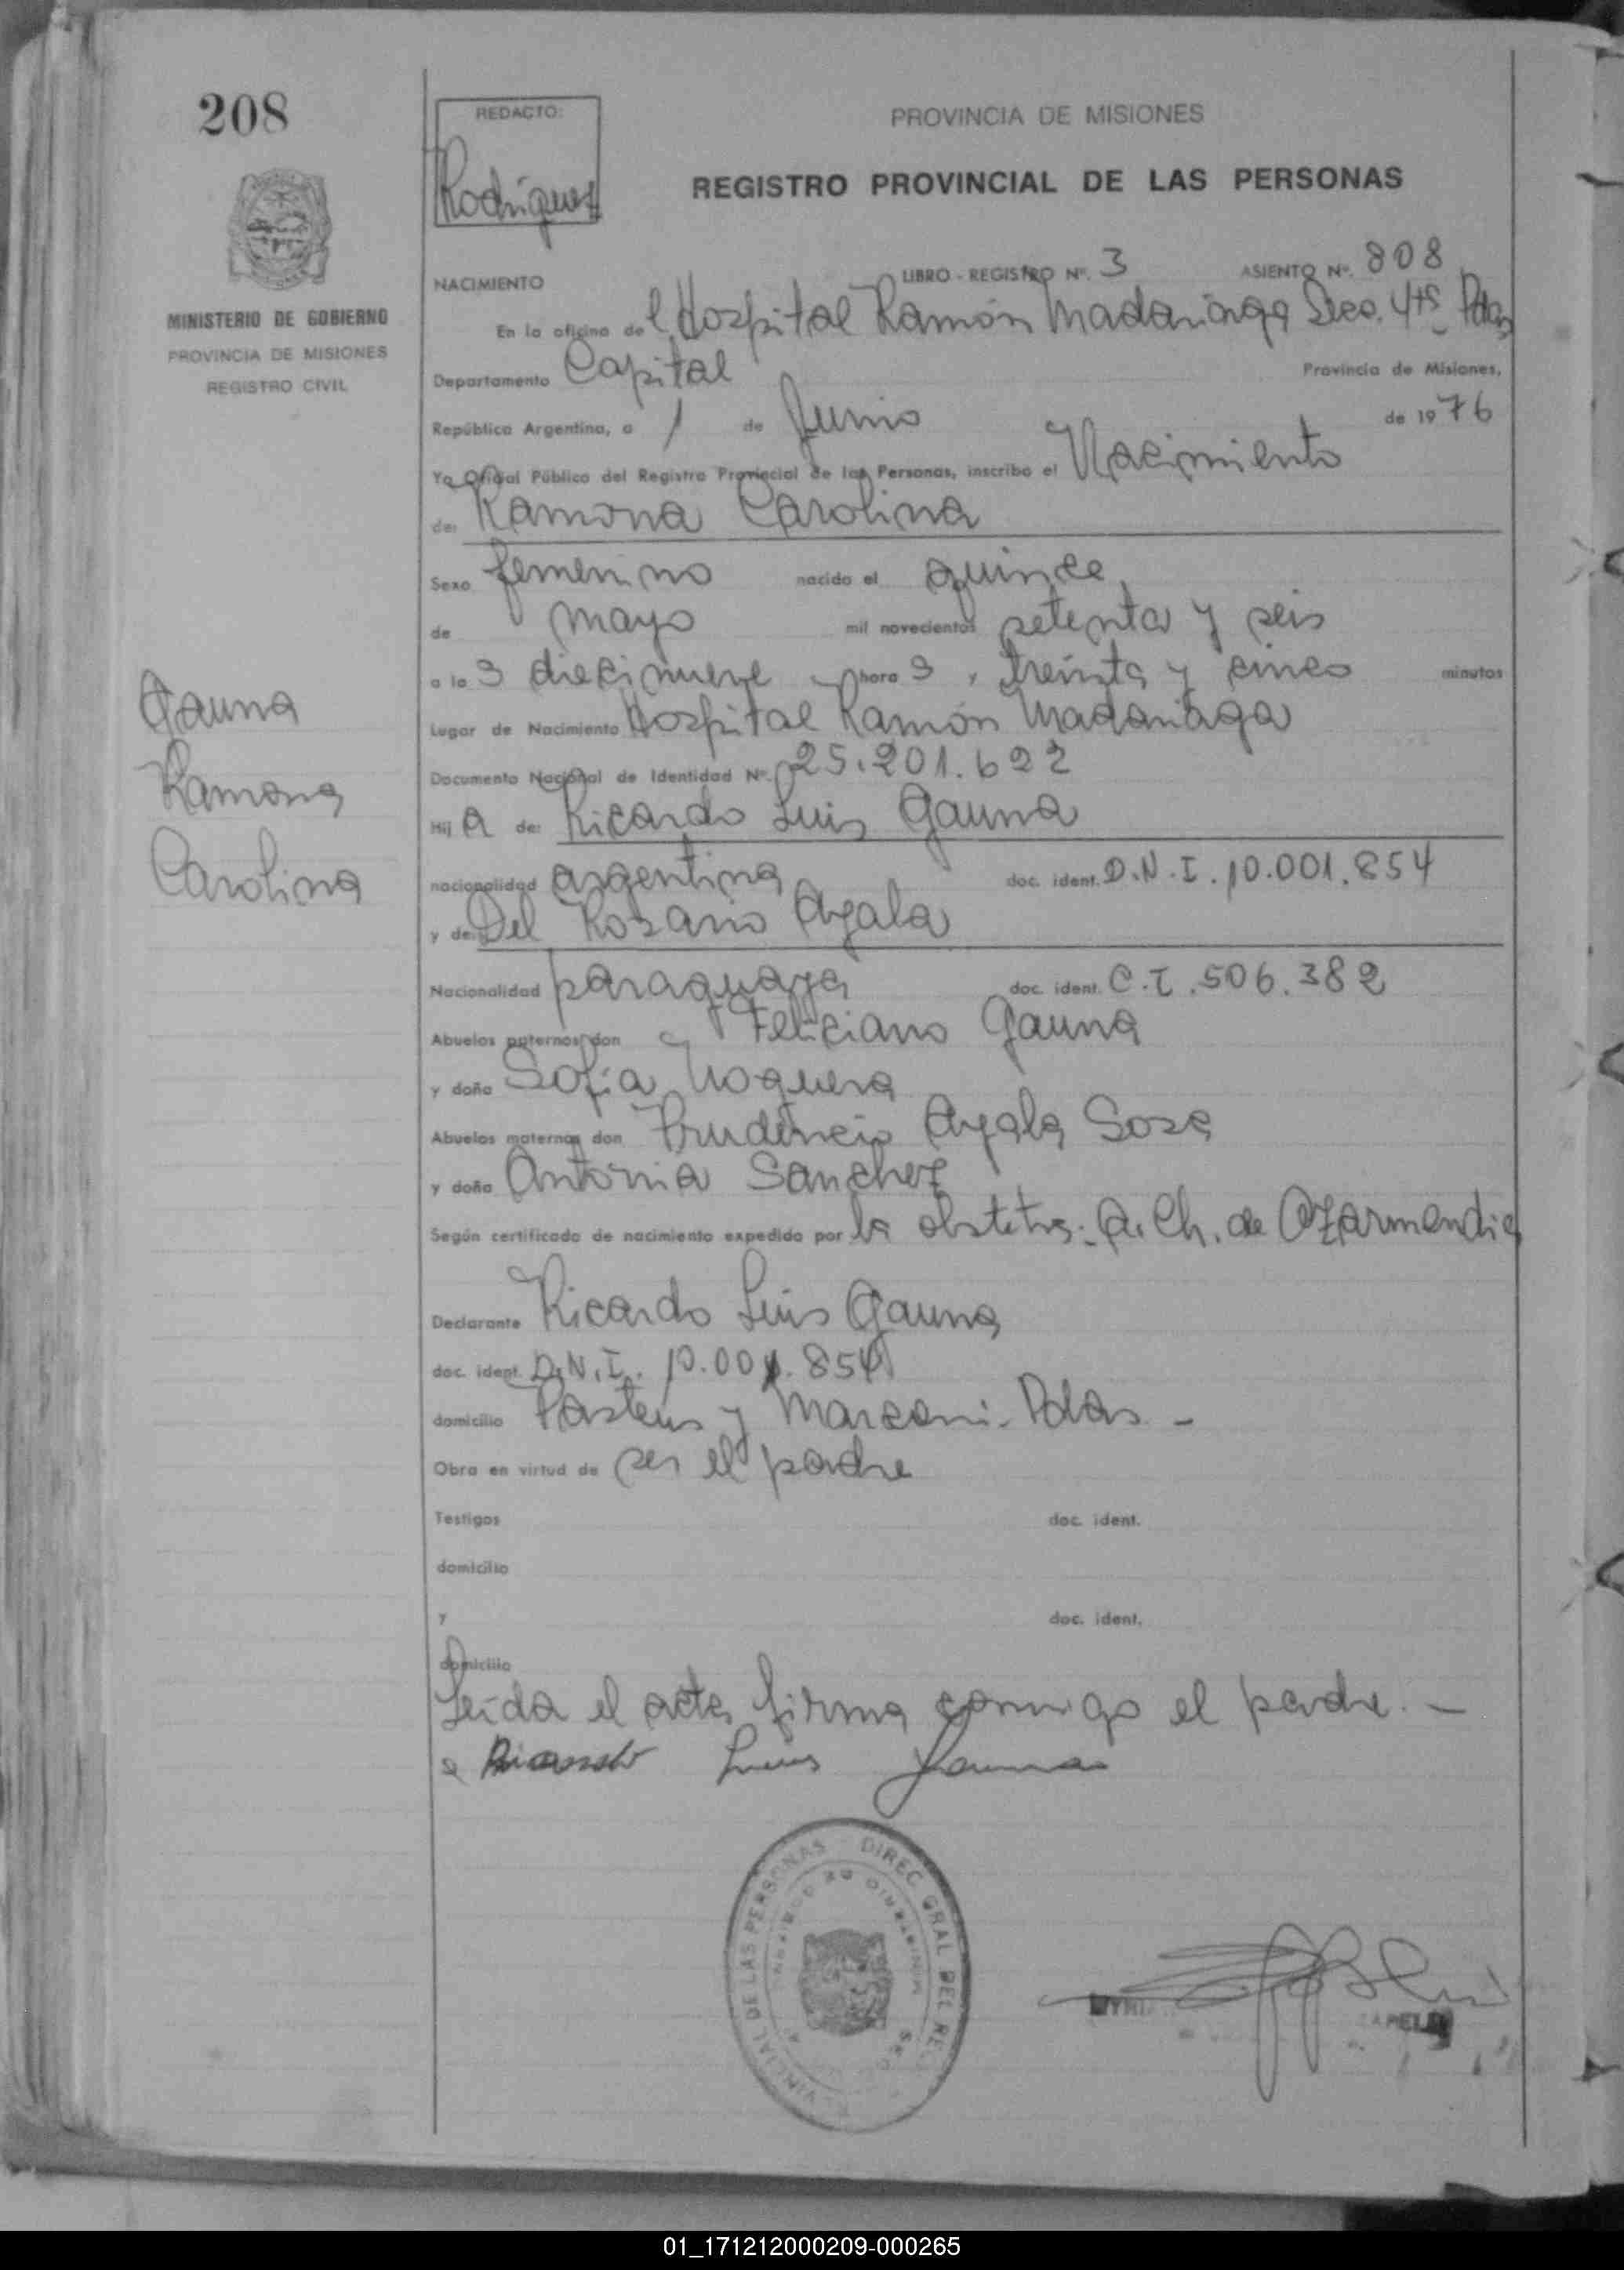 208
REDACTO:
Rodriguez
PROVINCIA DE MISIONES
REGISTRO PROVINCIAL DE LAS PERSONAS
MINISTERIO DE GOBIERNO
PROVINCIA DE MISIONES
REGISTRO CIVIL
NACIMIENTO
LIBRO - REGISTRO Nº. 3
ASIENTO Nº. 808
En la oficina del Hospital Ramón Madariaga Secc. 4ta Pdas
Departamento Capital Provincia de Misiones,
República Argentina, a 1 de Junio de 1976
Yo Oficial Público del Registro Provincial de las Personas, inscribo el Nacimiento
de: Ramona Carolina
Sexo femenino nacido el quince
de mayo mil novecientos setenta y seis
a las diecinueve horas, treinta y cinco minutos
Lugar de Nacimiento Hospital Ramón Madariaga
Documento Nacional de Identidad Nº. 25.201.622
Gauna
Ramona
Carolina
Hij a de: Ricardo Luis Gauna
nacionalidad argentina doc. ident. D.N.I. 10.001.854
y de: Del Rosario Ayala
Nacionalidad paraguaya doc. ident. C.I. 506.382
Abuelos paternos don Feliciano Gauna
y doña Sofia Noguera
Abuelos maternos don Prudencio Ayala Sosa
y doña Antonia Sanchez
Según certificado de nacimiento expedido por la obstetra: A. Ch. de Ozarmendia
Declarante Ricardo Luis Gauna
doc. ident. D.N.I. 10.001.854
domicilio Pasteur y Marconi - Pdas. -
Obra en virtud de ser el padre
Testigos doc. ident.
domicilio
y doc. ident.
domicilio
Leida el acta firma conmigo el padre. -
Ricardo Luis Gauna
DIREC. GRAL DEL REG. PROVINCIAL DE LAS PERSONAS
MINISTERIO DE GOBIERNO
01_171212000209-000265